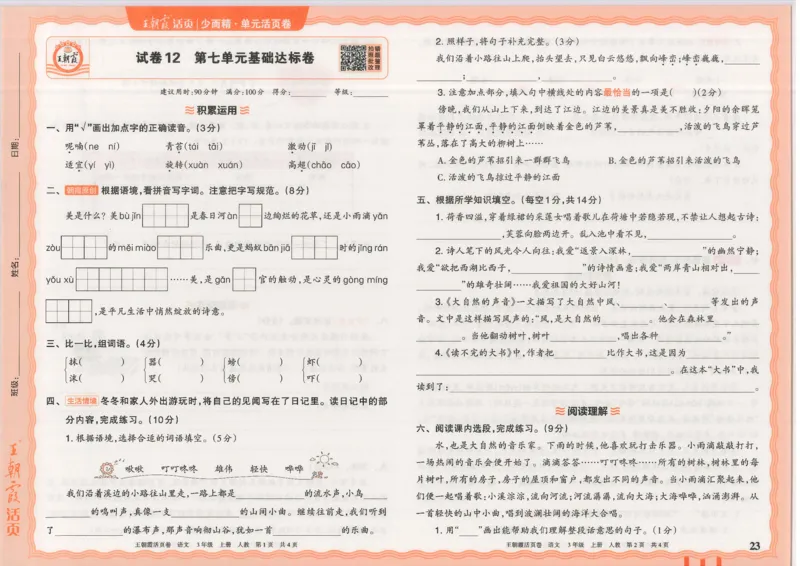 王朝霞活页 少而精·单元活页卷
王朝霞
试卷12 第七单元基础达标卷
建议用时:90分钟 满分:100分 得分: 等级:
积累运用
一、用“√”画出加点字的正确读音。(3分)
呢喃(ne ní) 青苔(tái tāi) 激动(jī jí)
适宜(yí yì) 旋转(xuàn xuán) 高超(chāo cāo)
二、朝霞原创 根据语境,看拼音写字词。注意把字写规范。(8分)
美是什么? 美bù jǐn 是春日河àn 边绚烂的花草,还是小雨滴yǎn
zòu 的měi miào 乐曲,更是蚂蚁bān jiā 时的jīng rán
yǒu xù ……美,是gǎn 官的触动,是心灵的gòng míng
,是平凡生活中悄然绽放的诗意。
三、比一比,组词语。(4分)
抹( ) 器( ) 螃( ) 虾( )
沫( ) 哭( ) 傍( ) 吓( )
四、生活情境 冬冬和家人外出游玩时,将自己的见闻写在了日记里。读日记中的部
分内容,完成练习。(10分)
1.根据语境,选择合适的词语填空。(5分)
啾啾 叮叮咚咚 雄伟 轻快 哗哗
我们沿着溪边的小路往山里走,一路上都是 的流水声,小鸟
的鸣叫声,真像一支 的山间小曲。继续往前走,我们听到
了 的瀑布声,那声音响彻山谷,犹如一首 的乐曲。
王朝霞活页卷 语文 3年级 上册 人教 第1页 共4页
2.照样子,将句子补充完整。(3分)
我们沿着小路往山上爬,抬头望去,只见白云悠悠,飘向峰峦;峰峦巍巍,
; , 。
3.注意加点部分,填入句中横线处的内容最恰当的一项是( )(2分)
傍晚,我们从山上下来,到达了江边。江边的美景真是美不胜收:夕阳的余晖笼
罩着平静的江面,平静的江面倒映着金色的芦苇, ,活泼的飞鸟穿过芦
苇丛,落在了高大的柳树上……
A.金色的芦苇招引来一群群飞鸟 B.金色的芦苇招引来活泼的飞鸟
C.活泼的飞鸟掠过平静的江面
五、根据所学知识填空。(每空1分,共14分)
1.荷香四溢,穿着绿裙的采莲女唱着歌儿在荷塘中若隐若现,不禁让人想起古诗:
,芙蓉向脸两边开。乱入池中看不见, 。
2.诗人笔下的风光令人向往:我爱“返景入深林, ”的幽然宁静;
我爱“欲把西湖比西子, ”的诗情画意;我爱“两岸青山相对出,
”的雄奇壮阔……我爱祖国的大好山河!
3.《大自然的声音》一文描写了大自然中风、 、 等发出的声
音。文中是这样描写风声的:“风,是大自然的 。他会在森林里
。当他翻动树叶,树叶 ,唱出各种 。”
4.《读不完的大书》中,作者把 比作大书,这是因为
。在这本“大书”中,我
读到了: 。
阅读理解
六、阅读课内选段,完成练习。(9分)
水,也是大自然的音乐家。下雨的时候,他喜欢玩打击乐器。小雨滴敲敲打打,
一场热闹的音乐会便开始了。滴滴答答……叮叮咚咚……所有的树林,树林里的每
片树叶,所有的房子,房子的屋顶和窗户,都发出不同的声音。当小雨滴汇聚起来,他
们便一起唱着歌:小溪淙淙,流向河流;河流潺潺,流向大海;大海哗啦,汹涌澎湃。从
一首轻快的山中小曲,唱到波澜壮阔的海洋大合唱。
1.用“ ”画出能帮助我们理解整段话意思的句子。(1分)
王朝霞活页卷 语文 3年级 上册 人教 第2页 共4页 23
日期:
姓名:
班级:
王朝霞活页